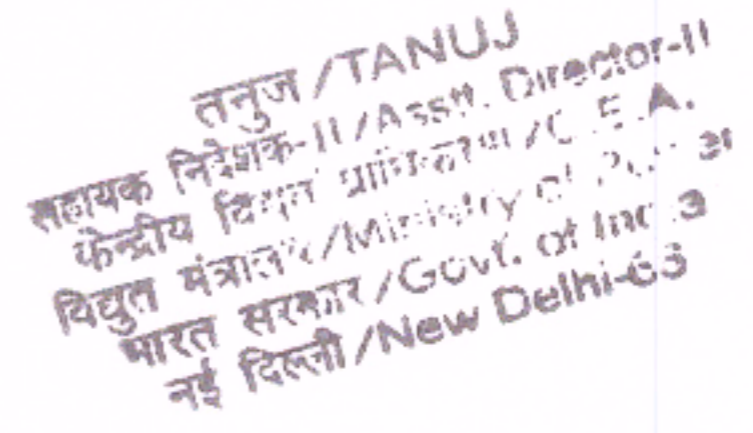 तनुज /TANUJ
सहायक निदेशक-II /Asstt. Director-II
केन्द्रीय विद्युत प्राधिकरण /C.E.A.
विद्युत मंत्रालय /Ministry of Power
भारत सरकार /Govt. of India
नई दिल्ली /New Delhi-66